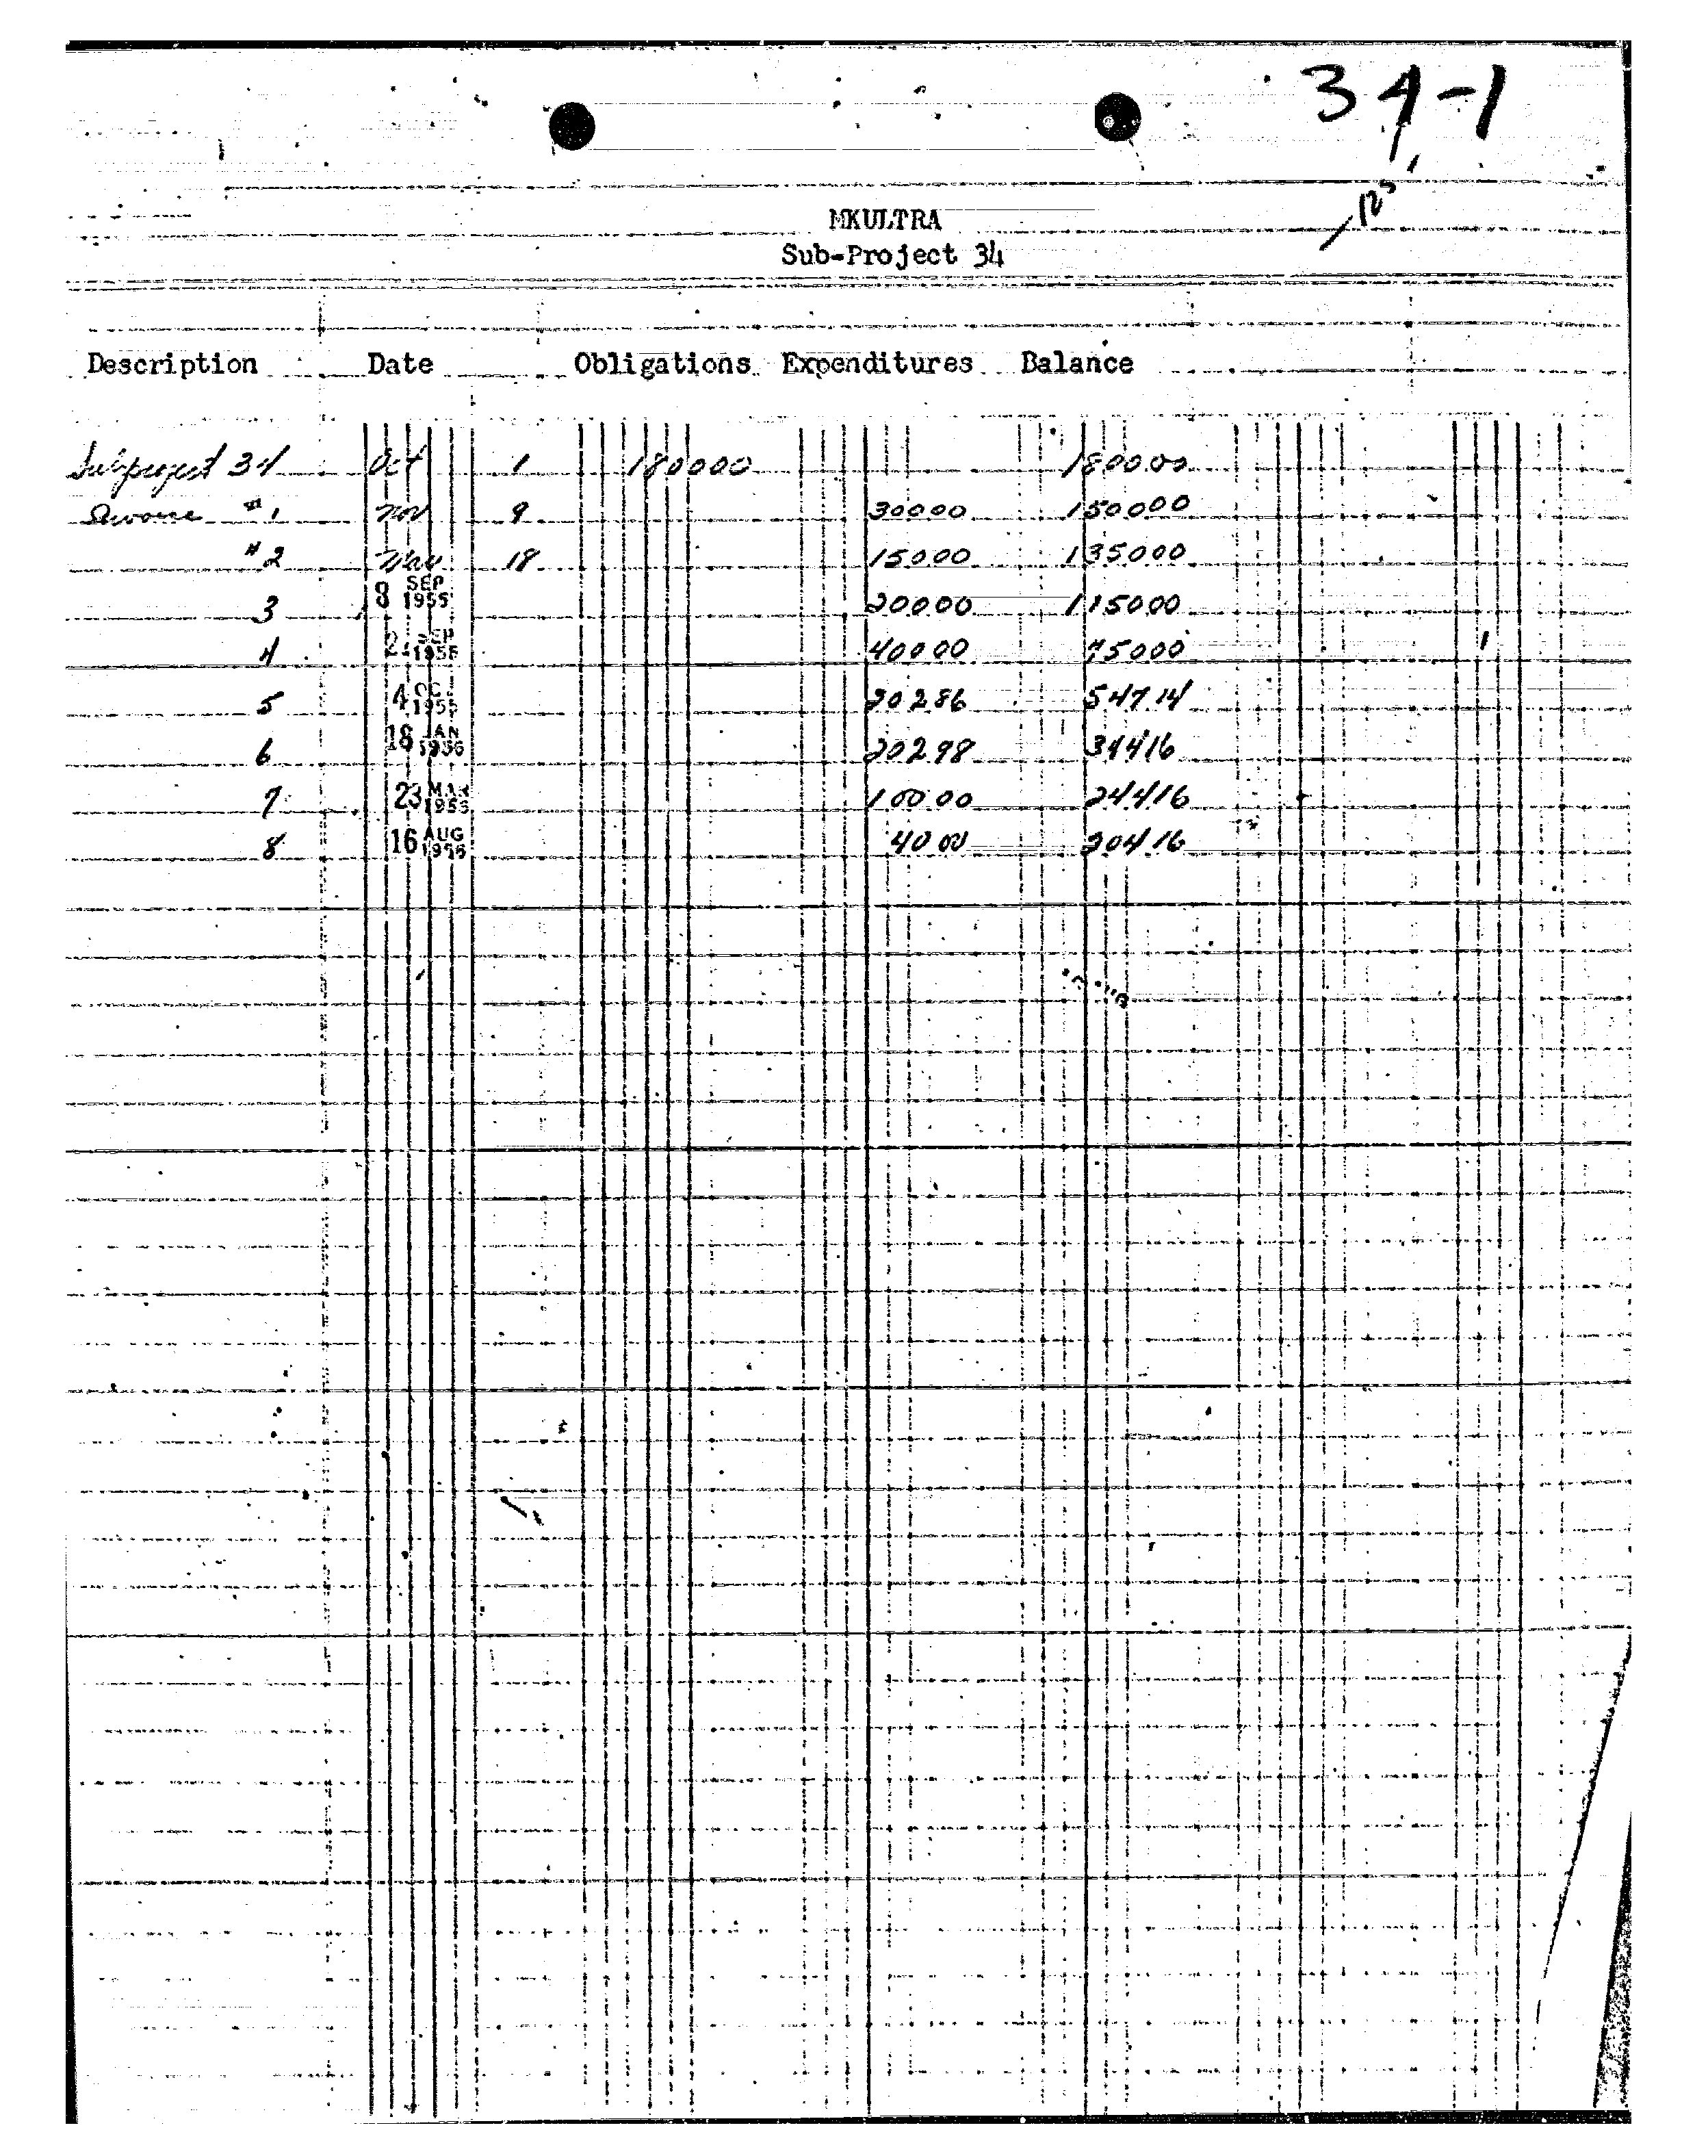 34-1
125
MKULTRA
Sub-Project 34
Description Date Obligations Expenditures Balance
Subproject 34 Oct 1 180000 180000
Invoice #1 Nov 9 30000 150000
#2 18 15000 135000
3 8 SEP 1955 20000 115000
4 SEP 40000 75000
5 4 OCT 1955 20286 54714
6 18 JAN 1956 20298 34416
7 23 MAR 10000 24416
8 16 AUG 4000 20416